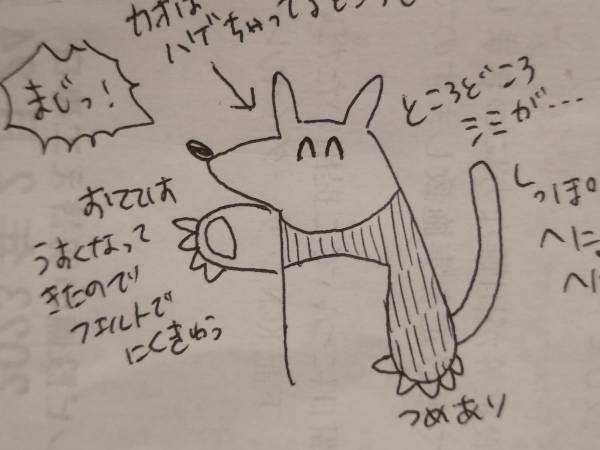 カオは
ハゲちゃってる
まじっ!
ところどころ
シミが…
おててはお
うすくなって
きたので
フェルトで
にくきゅう
しっぽ
へに
つめあり